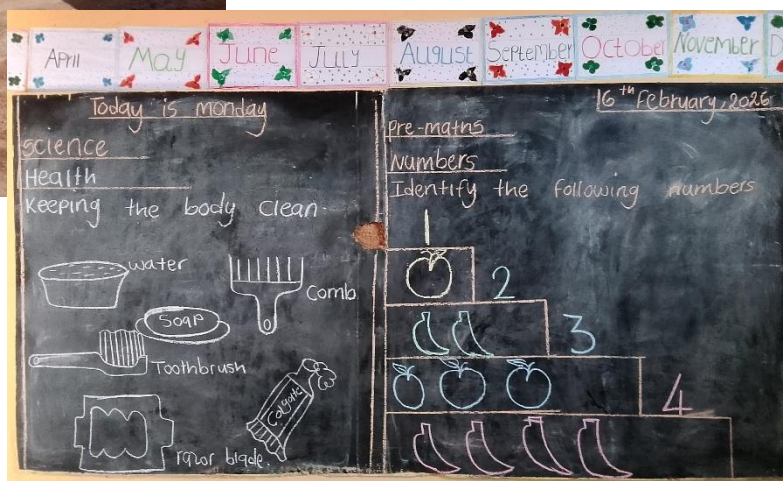 April
May
June
July
August
September
October
November
D
Today is monday
science
Health
Keeping the body clean.
water
Comb
Soap
Toothbrush
Colgate
razor blade.
16th February, 2026
Pre-maths
Numbers
Identify the following numbers
1
2
3
4